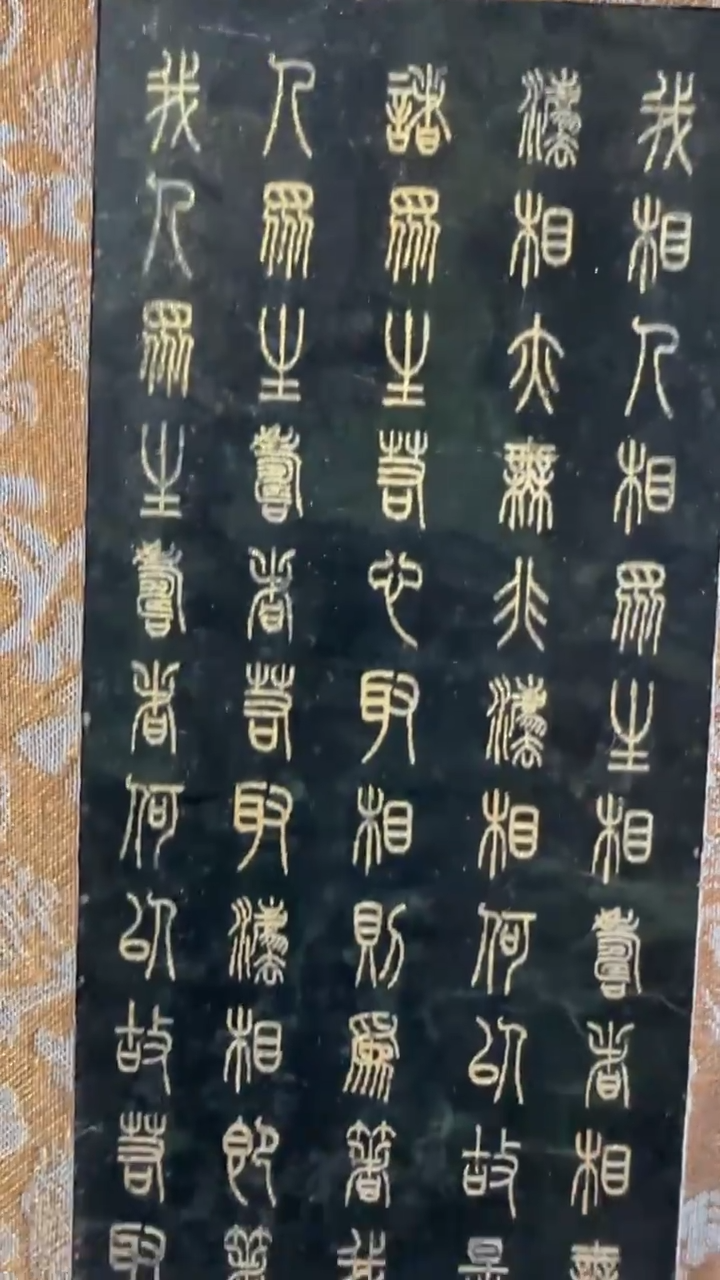 我相人相眾生相壽者相無
灋相亦無非灋相何以故是
諸眾生若心取相則為著我
人眾生壽者若取灋相即著
我人眾生壽者何以故若取